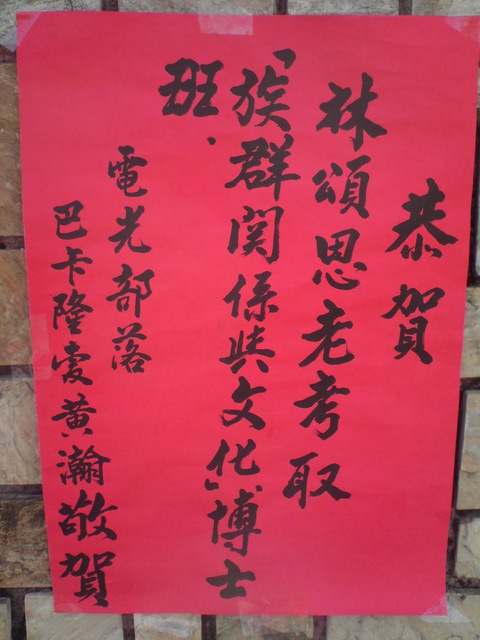 恭賀
林頌恩老考取
「族群関係與文化」博士
班.
電光部落
巴卡隆愛黃瀚敬賀